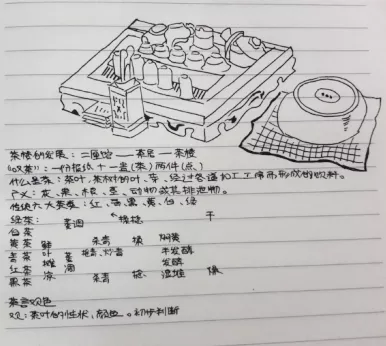 茶楼的发展：二厘馆——茶居——茶楼
"叹茶"：一份报纸十一盅(茶)两件(点)
什么是茶：茶叶，茶树的叶、芽，经过各道加工工序而形成的饮料。
广义：花、果、根、茎、动物或其排泄物。
传统六大类茶：红、青、黑、黄、白、绿
绿茶： 揉捻 干
白茶 萎凋
黄茶 鲜 杀青 揉 闷黄
青茶 叶 萎 摇青、炒青 半发酵
红茶 摊 凋 发酵
黑茶 凉 杀青 捻 渥堆 燥
察言观色
观：茶叶的性状，颜色。初步判断